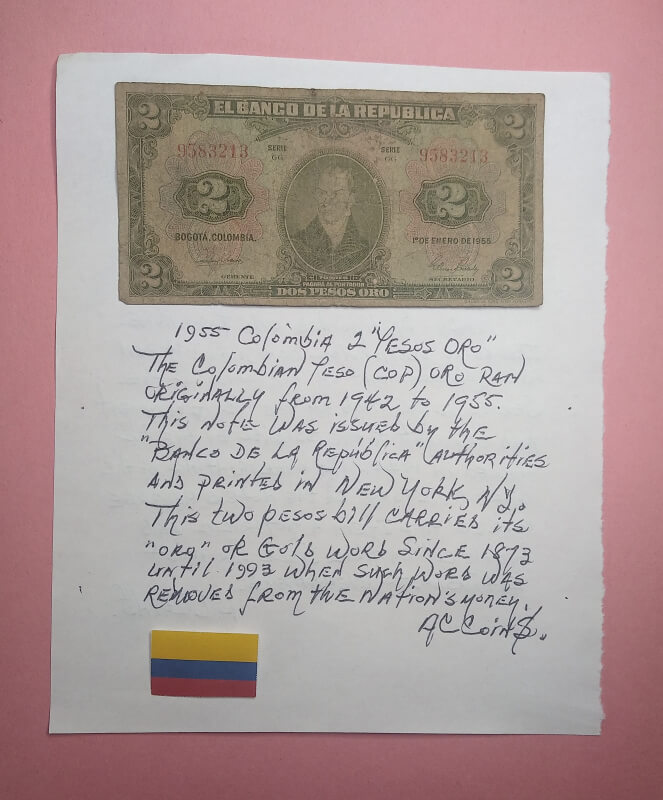 2 EL BANCO DE LA REPUBLICA 2
9583213 SERIE 66 SERIE 66 9583213
2 2
BOGOTÁ, COLOMBIA. 1º DE ENERO DE 1955
GERENTE SECRETARIO
PAGARÁ AL PORTADOR
2 DOS PESOS ORO 2
1955 Colombia 2 "Pesos Oro"
The Colombian Peso (COP) Oro ran
originally from 1942 to 1955.
This note was issued by the
"Banco De La República" authorities
and printed in New York, N.Y.
This two pesos bill carried its
"oro" or Gold word since 1873
until 1993 when such word was
removed from the nation's money.
AC Coin$.